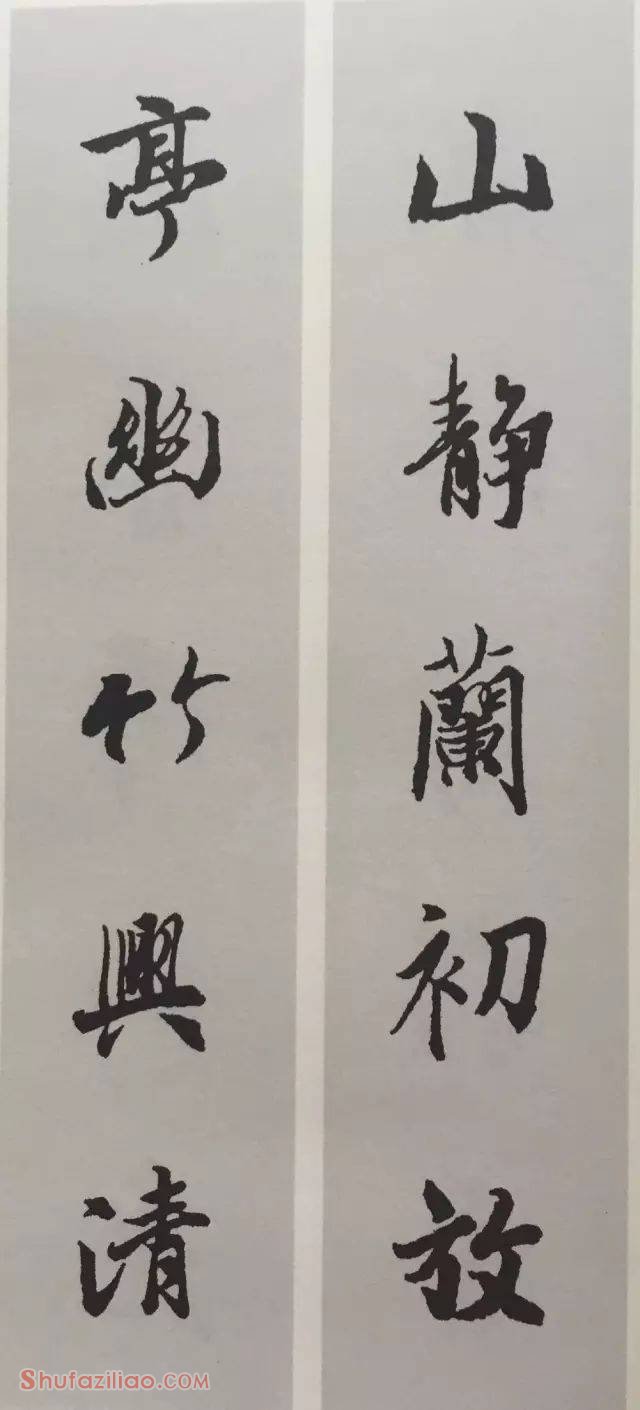 山静蘭初放
亭幽竹興清
Shufaziliao.com